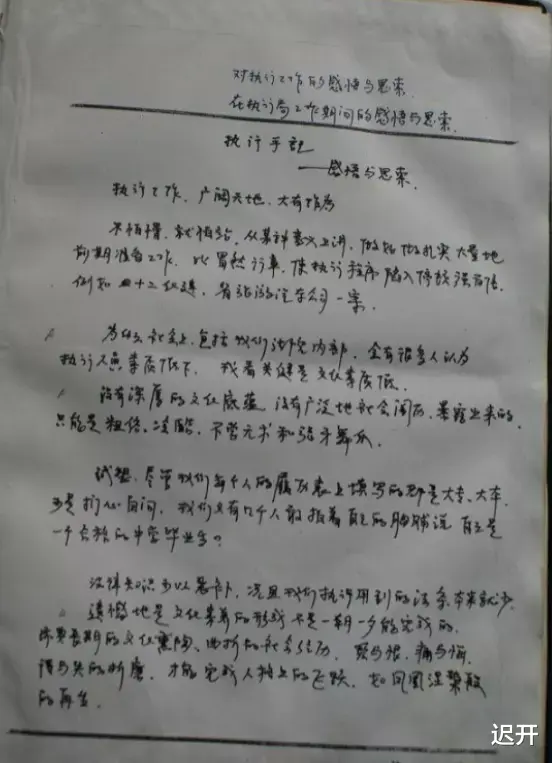 对执行工作的感悟与思索
在执行局工作期间的感悟与思索
执行手记
——感悟与思索
执行工作，广阔天地，大有作为
不怕慢，就怕站，从某种意义上讲，做好做扎实大量地
前期准备工作，比冒然行事，使执行程序陷入停放强百倍，
例如四十二伙连，省旅游汽车公司一案。
为什么社会上，包括我们法院内部，会有很多人认为
执行人员素质低下，我看关键是文化素质低。
没有深厚的文化底蕴，没有广泛地社会阅历，暴露出来的
只能是粗俗、凌酷、不学无术和张牙舞爪。
试想，尽管我们每个人的履历表上填写的都是大专、大本，
可是扪心自问，我们又有几个人敢拍着自己的胸脯说自己是
一个合格的中学毕业生？
法律知识可以恶补，况且我们执行用到的法条本来就少，
遗憾地是文化素养的形成不是一朝一夕能完成的，
需要长期的文化熏陶、曲折的社会经历，爱与恨、痛与悔、
得与失的折磨，才能完成人格上的飞跃，如凤凰涅槃般
的再生。
迟开